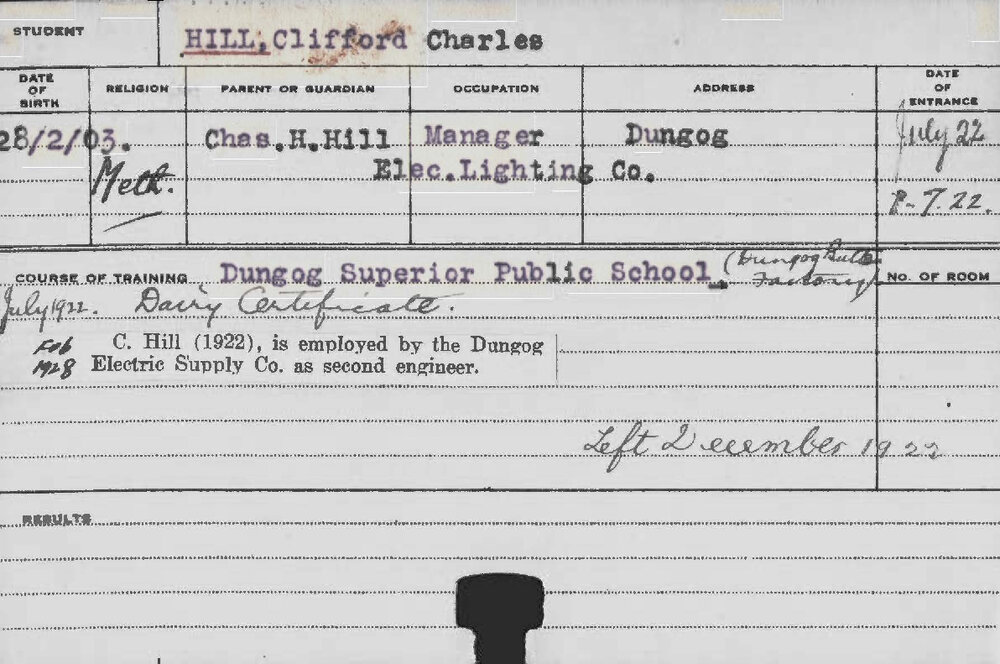 STUDENT HILL, Clifford Charles
DATE OF BIRTH RELIGION PARENT OR GUARDIAN OCCUPATION ADDRESS DATE OF ENTRANCE
28/2/03. Chas.H.Hill Manager Dungog July 22
Meth. Elec.Lighting Co.
8-7.22.
COURSE OF TRAINING Dungog Superior Public School (Dungog Butter Factory) NO. OF ROOM
July 1922. Dairy Certificate.
Feb C. Hill (1922), is employed by the Dungog
1928 Electric Supply Co. as second engineer.
Left December 1922
RESULTS